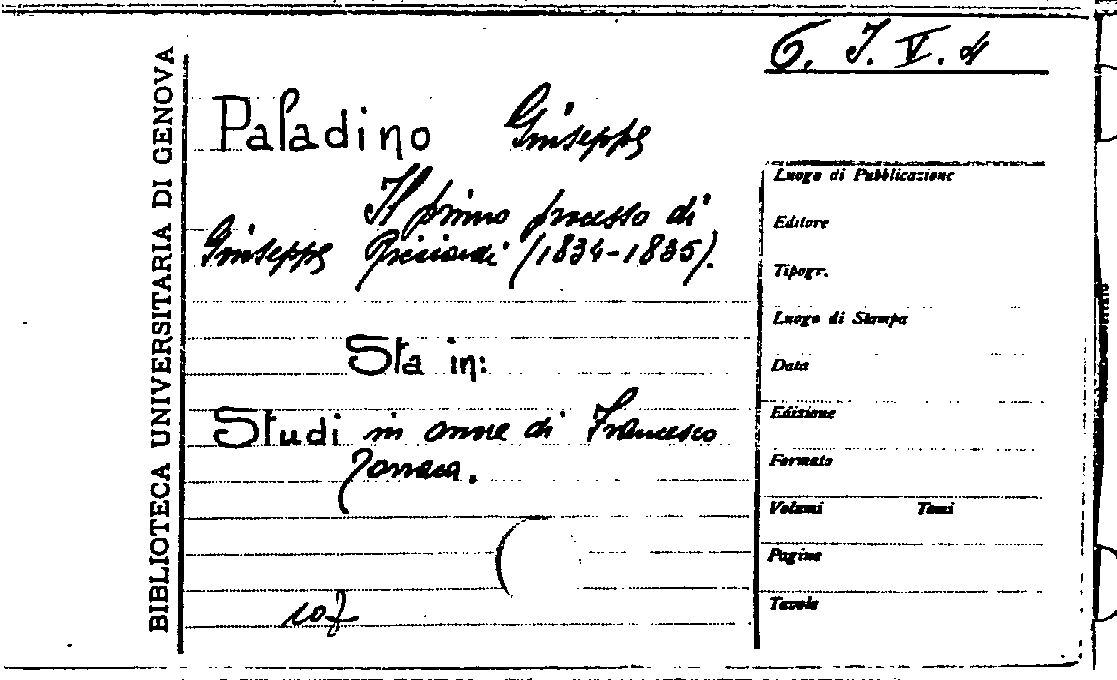 6. I. V. 4
BIBLIOTECA UNIVERSITARIA DI GENOVA
Paladino Giuseppe
Il primo processo di
Giuseppe Ricciardi (1834-1835).
Sta in:
Studi in onore di Francesco
Torraca.
Luogo di Pubblicazione
Editore
Tipogr.
Luogo di Stampa
Data
Edizione
Formato
Volumi Tomi
Pagine
Tavole